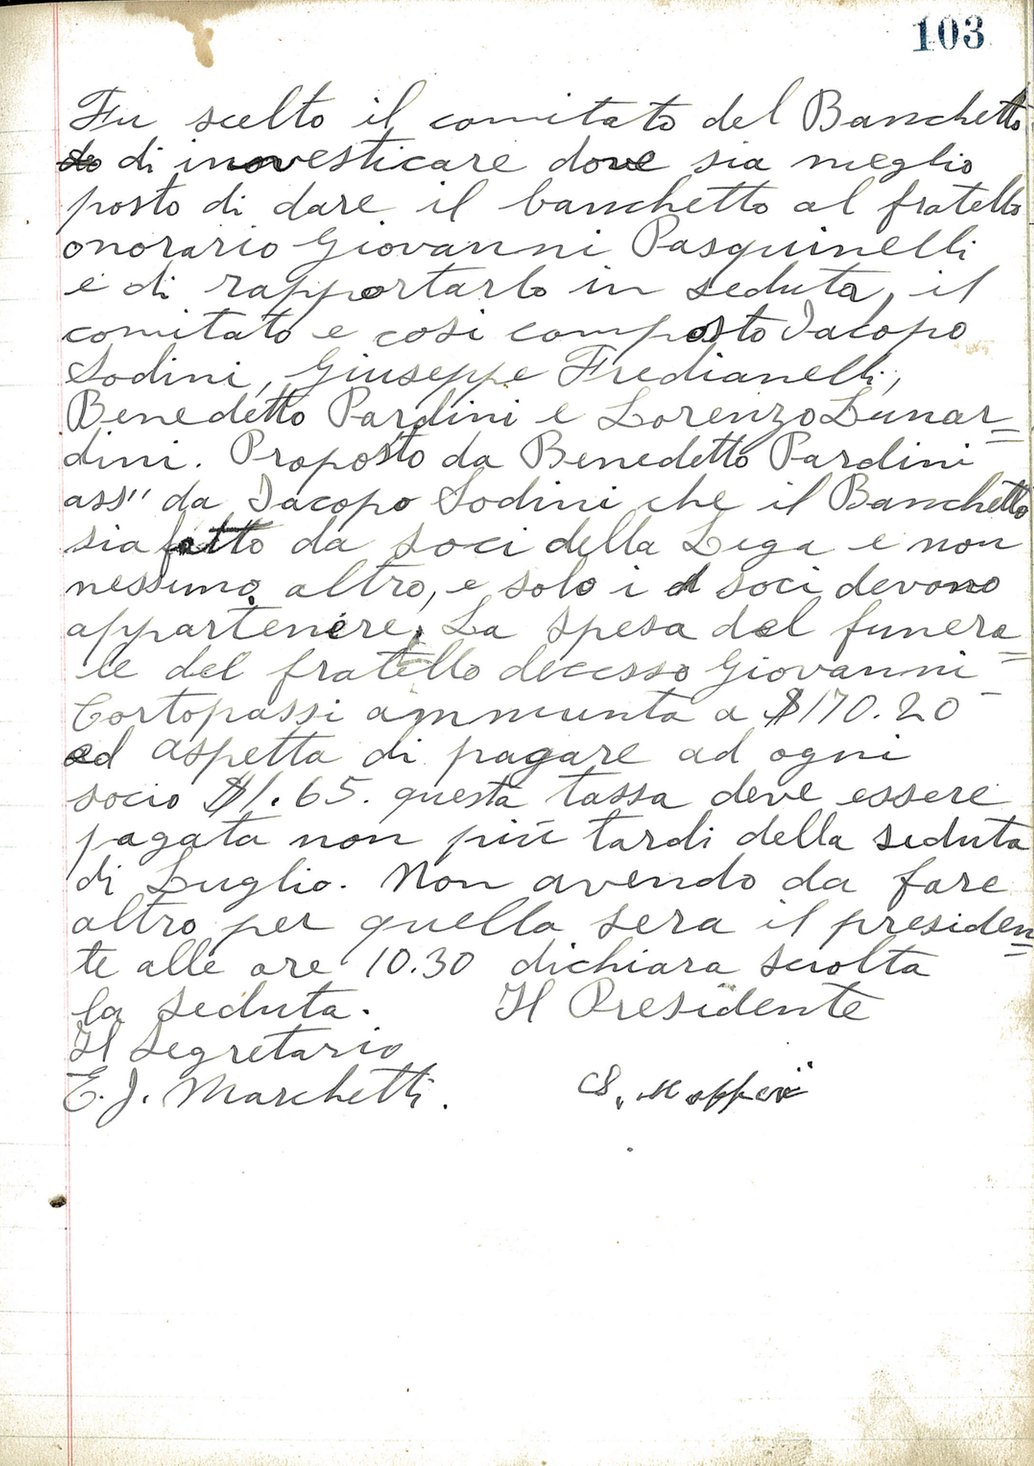 103
Fu scelto il comitato del Banchetto
di investicare dove sia meglio
posto di dare il banchetto al fratello
onorario Giovanni Pasquinelli
e di rapportarlo in seduta, il
comitato e cosi composto Iacopo
Sodini, Giuseppe Fredianelli,
Benedetto Pardini e Lorenzo Lunar=
dini. Proposto da Benedetto Pardini
ass" da Iacopo Sodini che il Banchetto
sia fatto da soci della Lega e non
nessuno altro, e solo i soci devono
appartenere. La spesa del funera=
le del fratello decesso Giovanni
Cortopassi ammunta a $170.20
ed aspetta di pagare ad ogni
socio $1.65. questa tassa deve essere
pagata non più tardi della seduta
di Luglio. Non avendo da fare
altro per quella sera il presiden=
te alle ore 10.30 dichiara sciolta
la seduta. Il Presidente
Il Segretario
E. J. Marchetti.